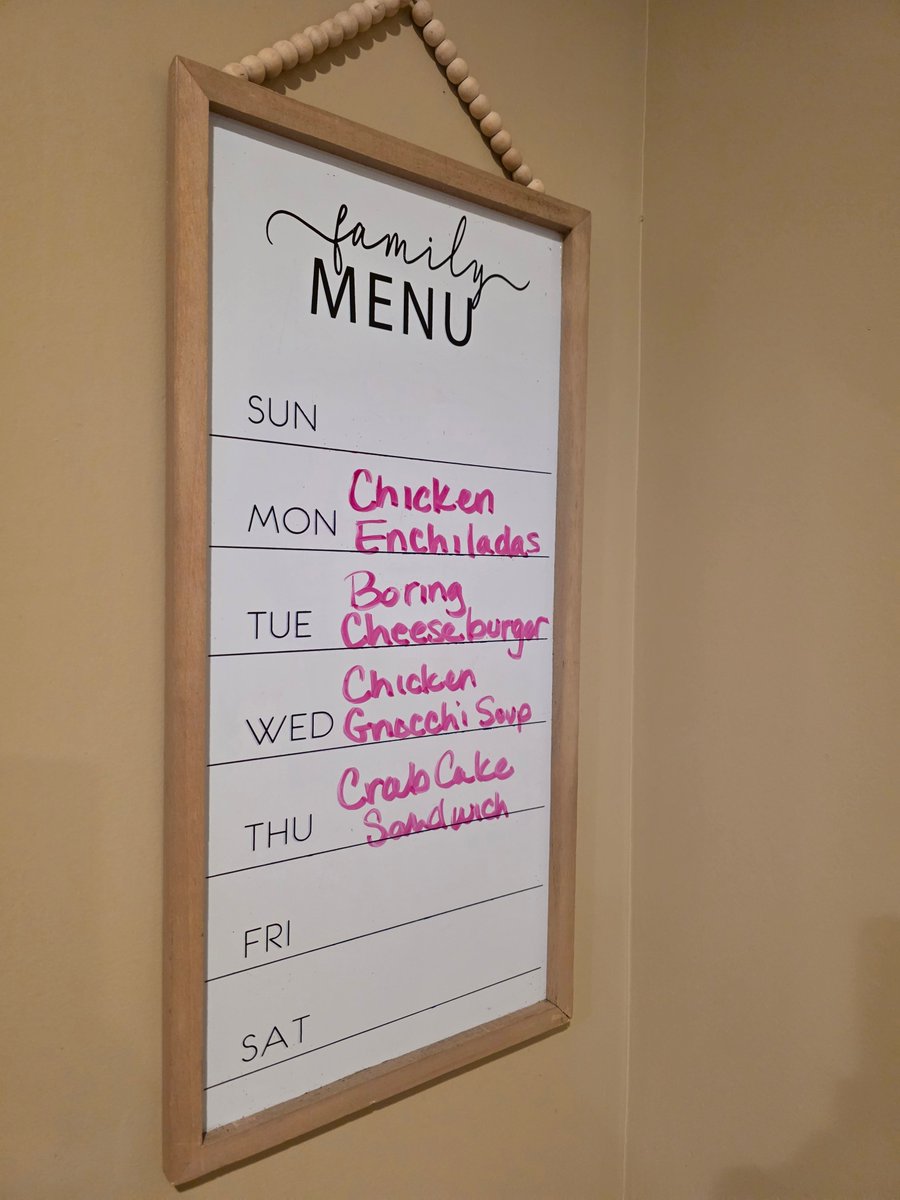 family
MENU
SUN
MON Chicken
Enchiladas
TUE Boring
Cheeseburger
WED Chicken
Gnocchi Soup
THU Crab Cake
Sandwich
FRI
SAT